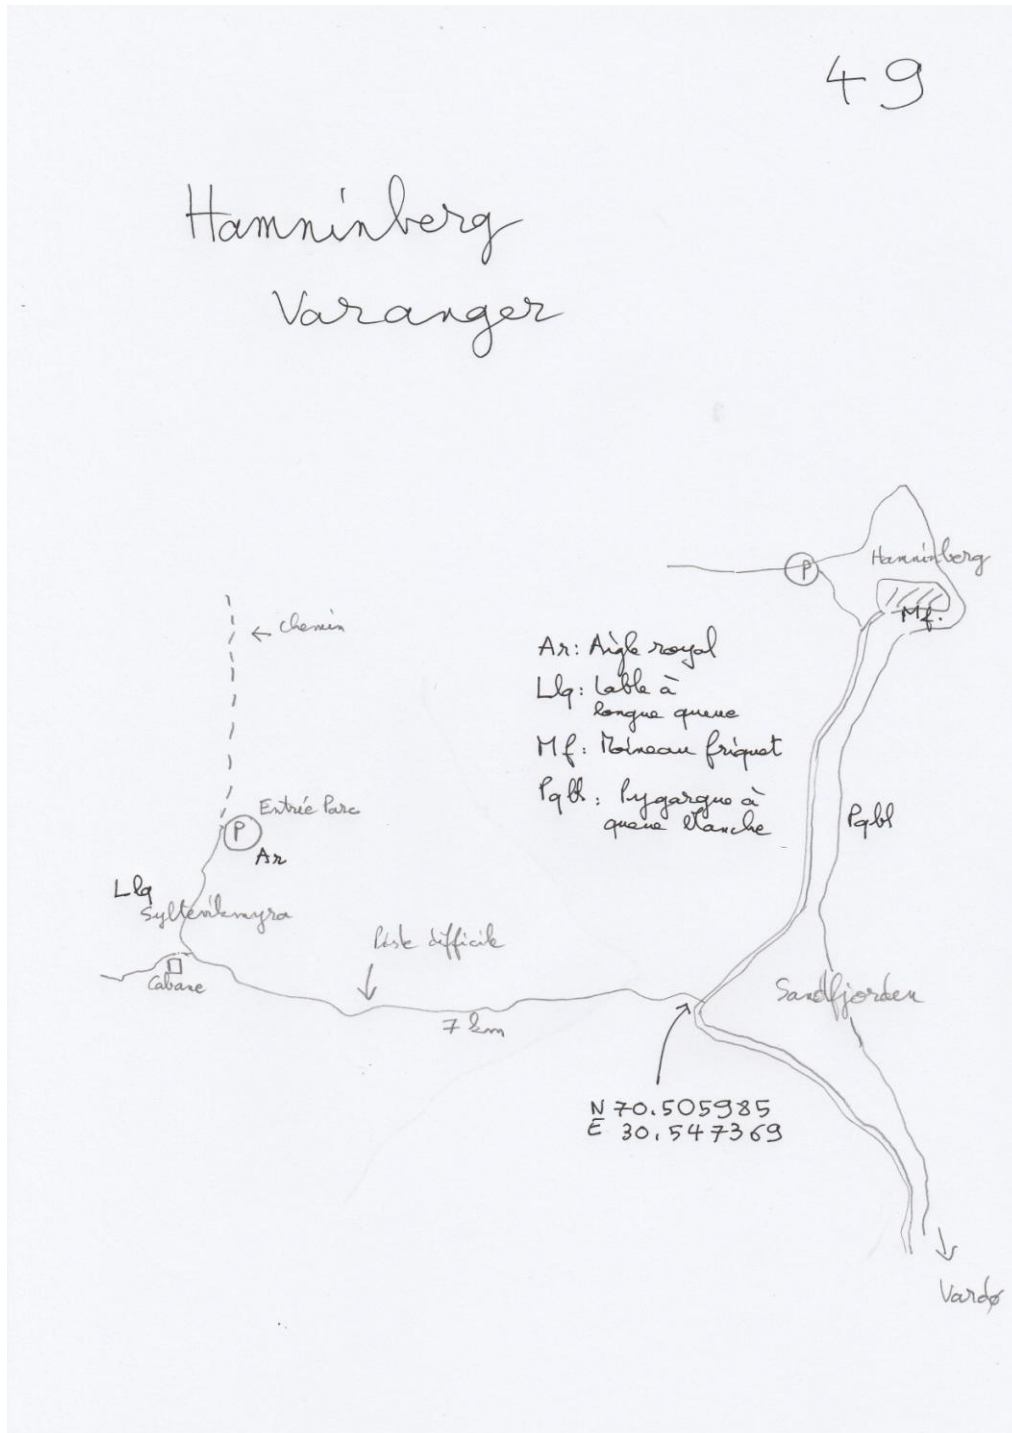 49
Hamninberg
Varanger
Hamninberg
P
Mf.
← chemin
Ar: Aigle royal
Llq: Labbe à
longue queue
Mf: Moineau friquet
Pqbl: Pygargue à
queue blanche
Entrée Parc
P
Ar
Pqbl
Llq
Syltevikmyra
Piste difficile
Cabane
Sandfjorden
7 km
N 70.505985
E 30.547369
Vardø